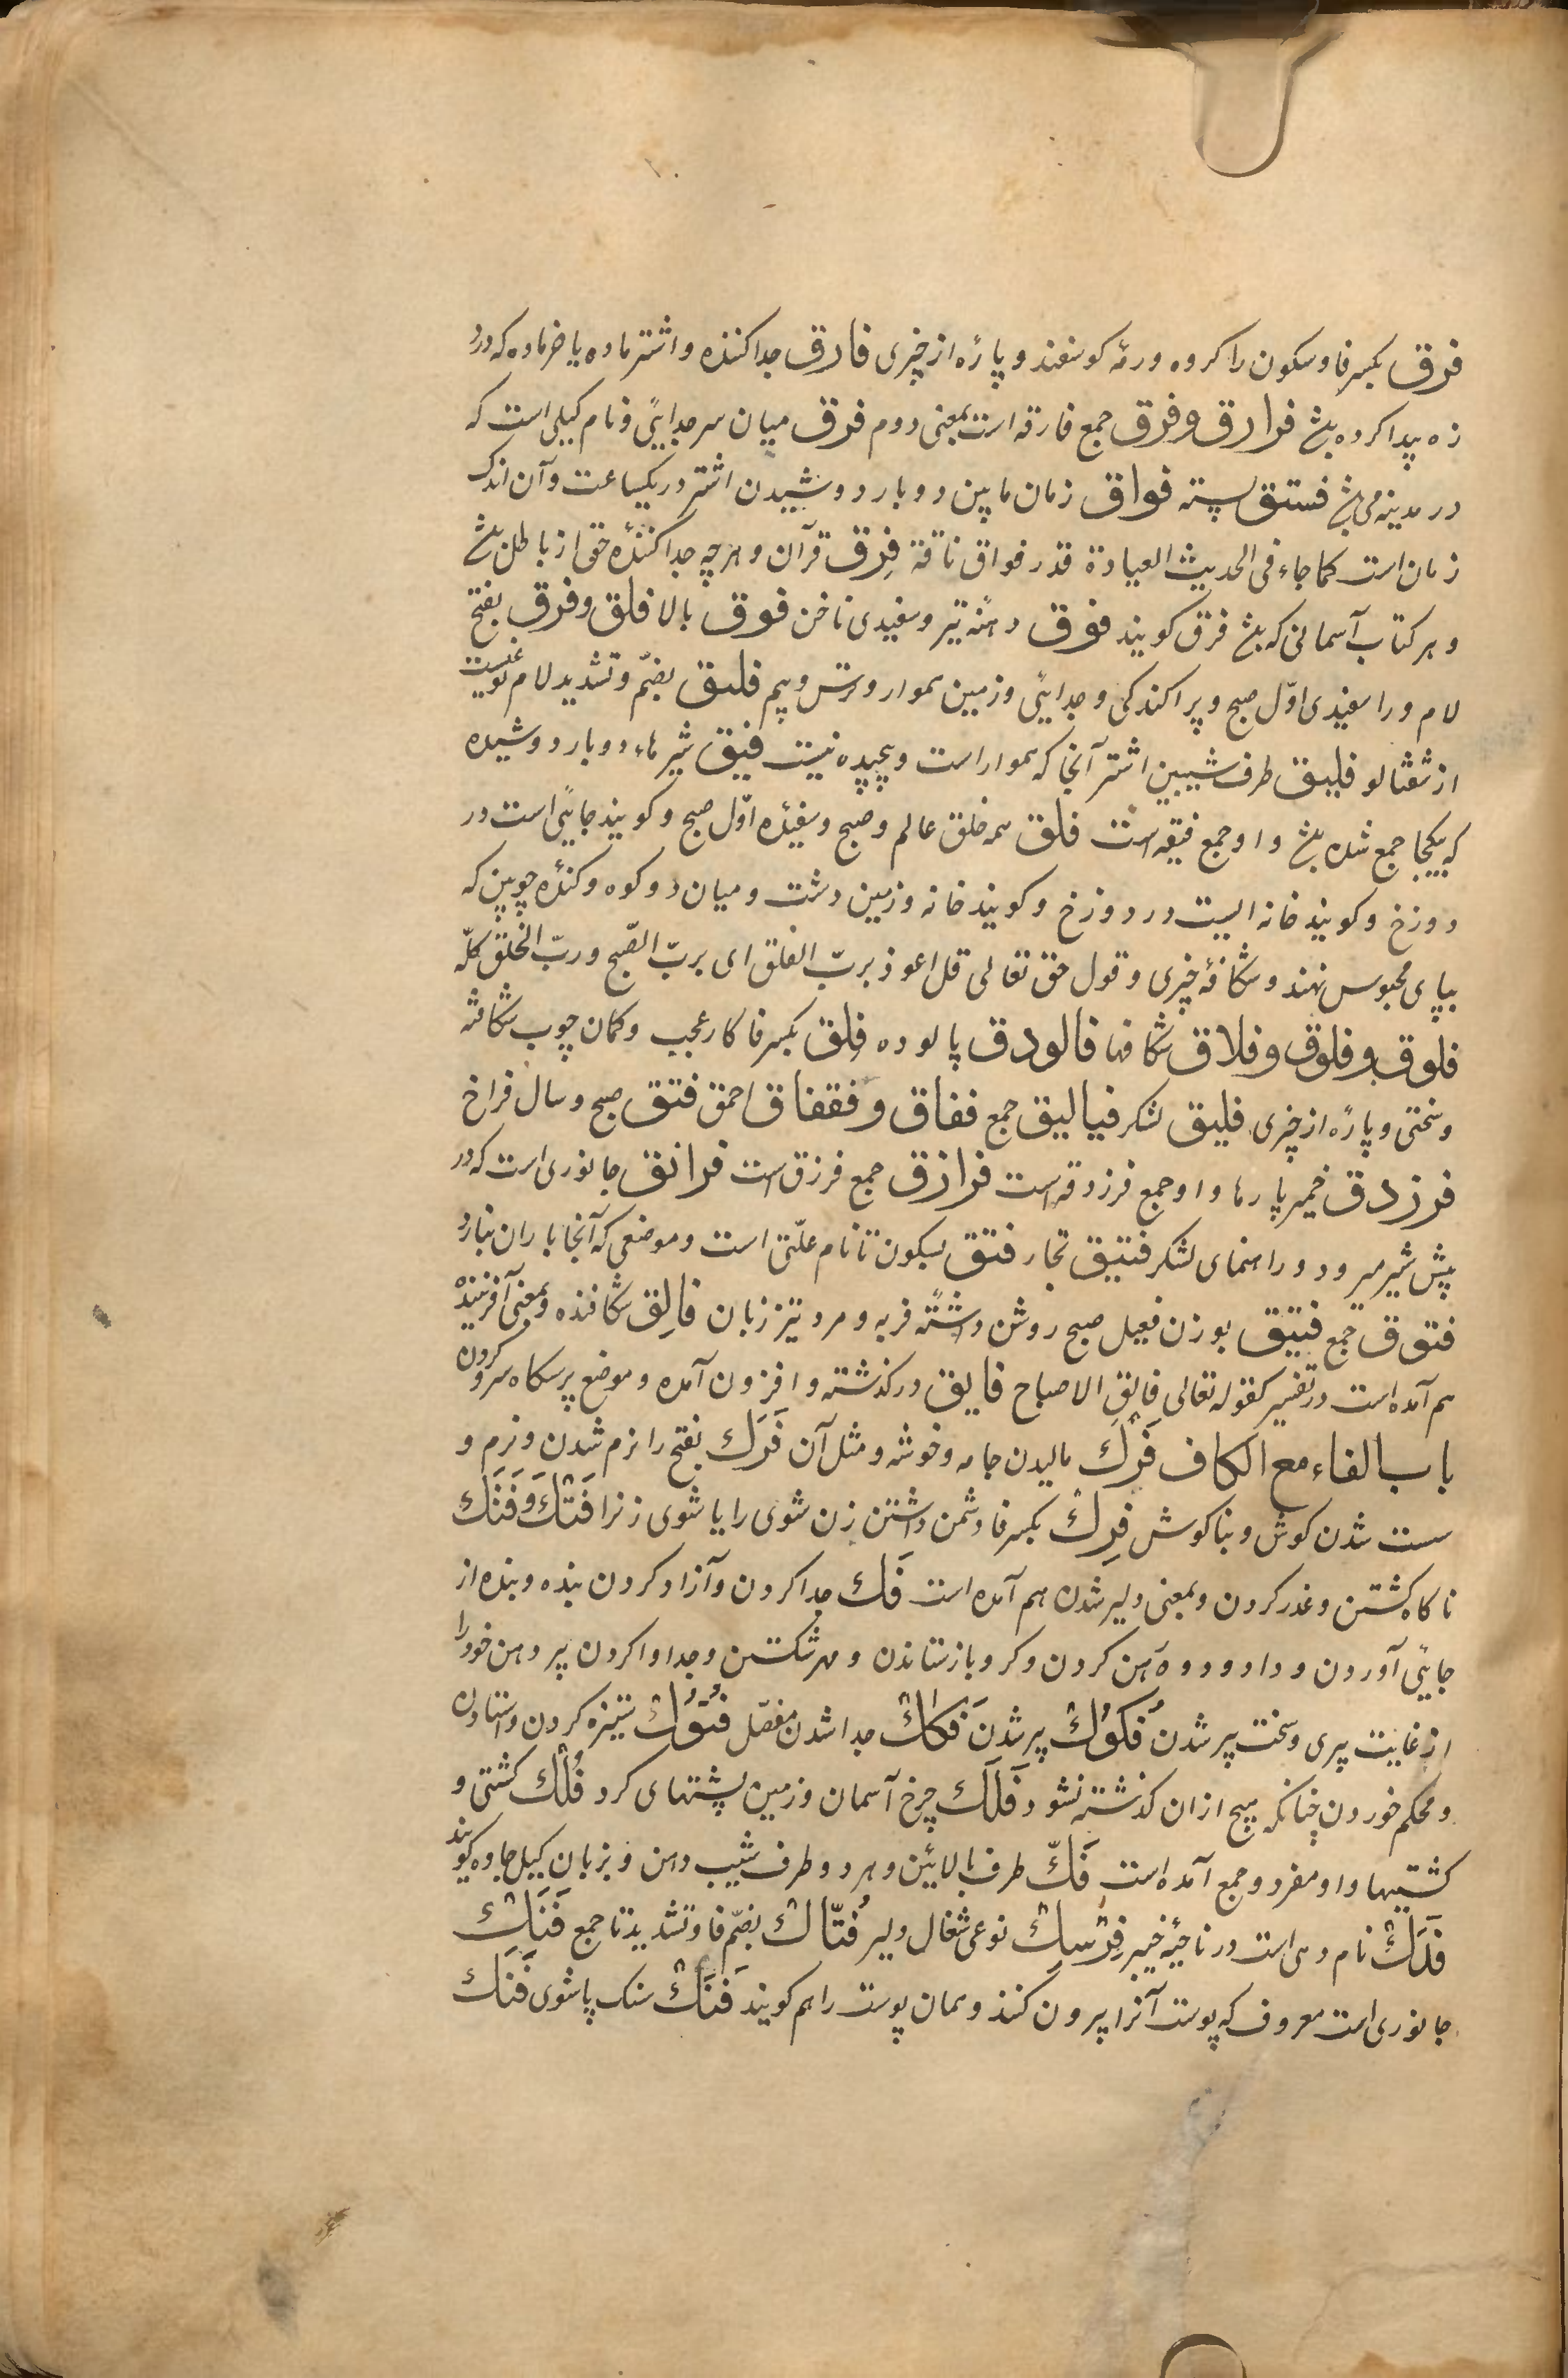 فرق بکسر فا و سکون را کروه و رمهٔ کوسفند و پارهٔ از چیزی فارق جدا کننده و اشتر ماده یا خر ماده که درد
زه پیدا کرده باشد فوارق و فرق جمع فارقه است بمعنی دوم فرق میان سر جدایئ و نام کیلی است که
در مدینه می باشد فستق پسته فواق زمان ما بین دو بار دوشیدن اشتر در یکساعت و آن اندک
زمان است کما جاء فی الحدیث العیادة قدر فواق ناقة فرق قرآن و هر چه جدا کنندهٔ حق از باطل باشد
و هر کتاب آسمانی که باشد فرق کویند فوق دهنهٔ تیر و سفیدی ناخن فوق بالا فلق و فرق بفتح
لام و را سفیدی اوّل صبح و پراکندکی و جدایئ و زمین هموار و ترس و بیم فلیق بضمّ و تشدید لام نوعیست
از شفتالو فلیق طرف شیبین اشتر آنجا که هموار است و پیچیده نیست فیق شیرهاء دو بار دوشیده
که یکجا جمع شده باشد و او جمع فیقه است فلق همه خلق عالم و صبح و سفیدهٔ اوّل صبح و کویند جایئ است در
دوزخ و کویند خانه ایست در دوزخ و کویند خانه و زمین دشت و میان دو کوه و کندهٔ چوبین که
بپای محبوس نهند و شکافهٔ چیزی و قول حق تعالی قل اعوذ بربّ الفلق ای بربّ الصّبح و ربّ الخلق کلّه
فلوق و فلوق و فلاق شکافها فالودق پالوده فلق بکسر فا کار عجب و کمان چوب شکافته
و سختی و پارهٔ از چیزی فلیق لشکر فیالیق جمع ففاق و فقفاق احمق فتق صبح و سال فراخ
فرزدق خمیر پارها و او جمع فرزدقه است فرازق جمع فرزق است فرانق جانوری است که در
پیش شیر میرود و راهنمای لشکر فتیق نجار فتق بسکون تا نام علّتی است و موضعی که آنجا باران نبارد
فتوق جمع فتیق بوزن فعیل صبح روشن و اشتر فربه و مرد تیز زبان فالق شکافنده و بمعنی آفریننده
هم آمده است در تفسیر کقوله تعالی فالق الاصباح فایق درکذشته و افزون آمده و موضع پرسکاه سر و کردن
باب الفاء مع الکاف فَرْك مالیدن جامه و خوشه و مثل آن فَرَك بفتح را نرم شدن و نرم و
سست شدن کوش و بناکوش فِرْك بکسر فا دشمن داشتن زن شوی را یا شوی زنرا فَتْك و فَتَك
ناکاه کشتن و غدر کردن و بمعنی دلیر شدن هم آمده است فَك جدا کردن و آزاد کردن بنده و بنده از
جایئ آوردن و دارو در دهن کردن و کرو باز ستاندن و مهر شکستن و جدا وا کردن پیر دهن خود را
از غایت پیری و سخت پیر شدن فُكوُك پیر شدن فَكاك جدا شدن مفصّل فُتوُك ستیزه کردن و استادن
و محکم خوردن چنانکه هیچ از ان کذشته نشود فَلَك چرخ آسمان و زمین پشتهای کرد فُلْك کشتی و
کشتیها و او مفرد و جمع آمده است فَكّ طرف بالائین و هر دو طرف شیب دهن و بزبان کیل جاوه کویند
فَدَك نام دهی است در ناحیهٔ خیبر فِرْسِك نوعی شغال دلیر فُتّاك بضمّ فا و تشدید تا جمع فَنَك
جانوری است معروف که پوست آنرا بیرون کنند و همان پوست را هم کویند فَنَك سنک پاشوی فَنَك